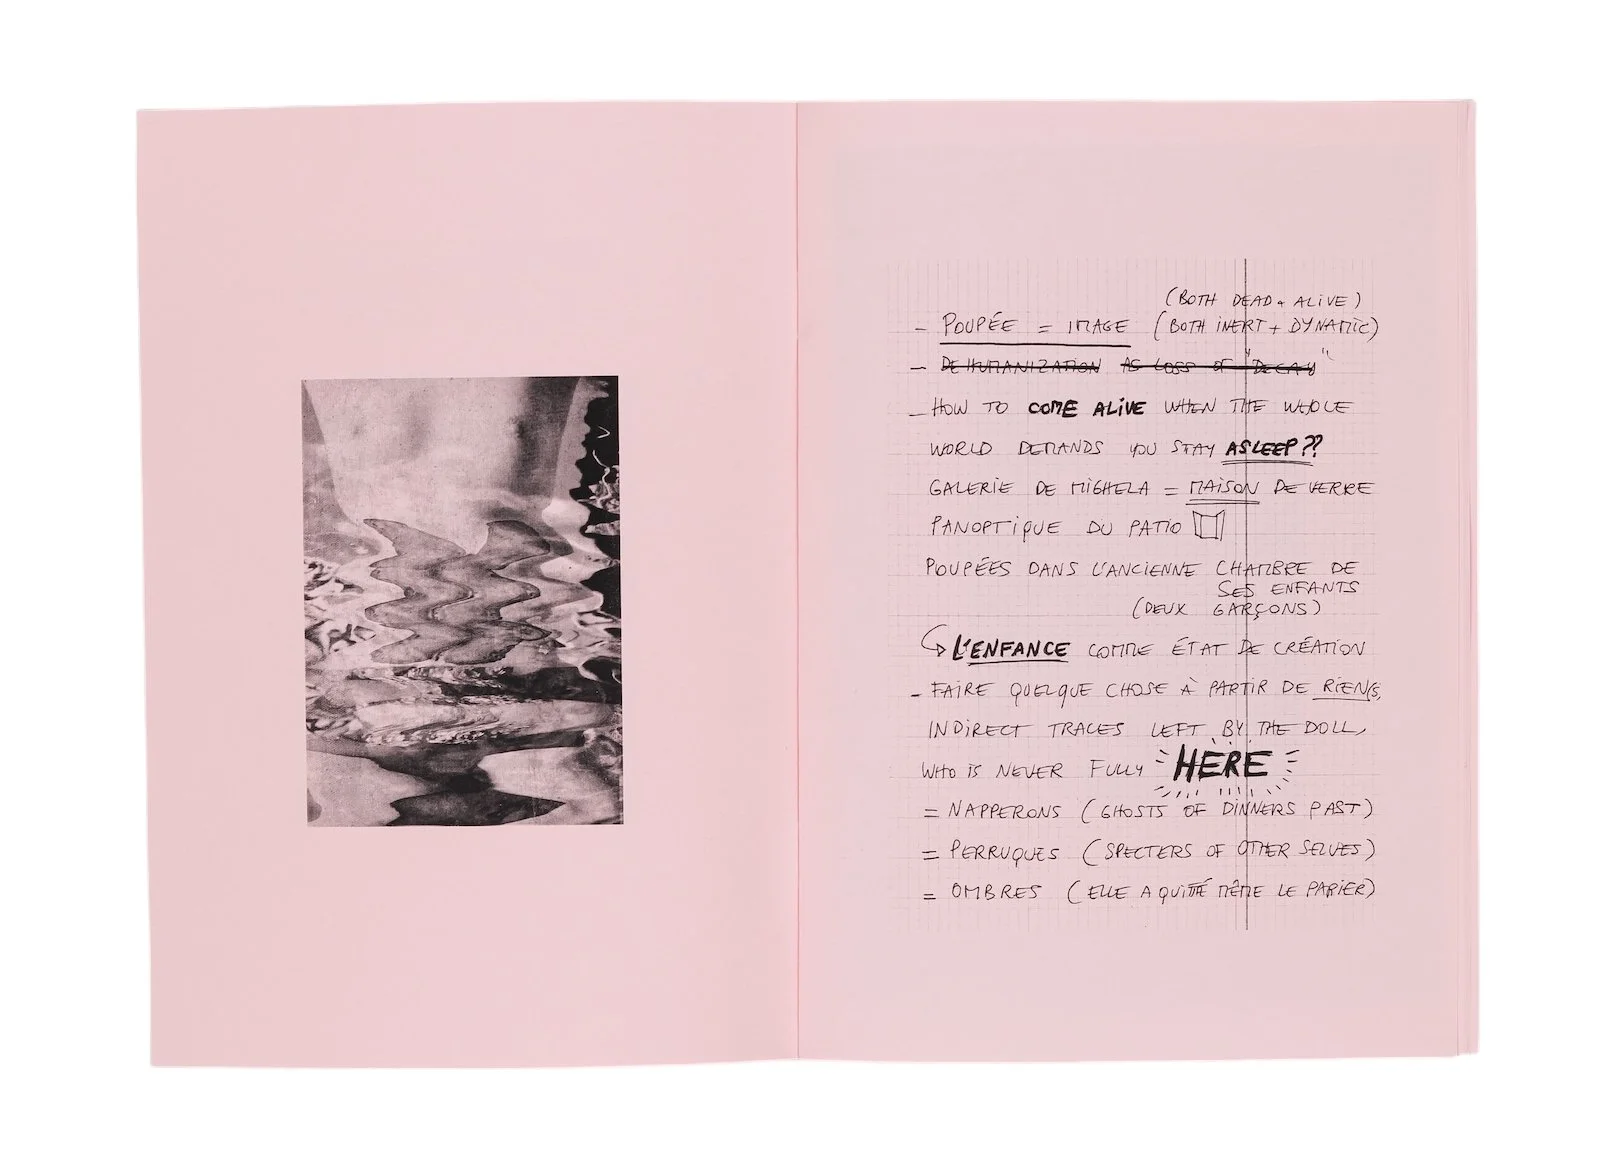 (BOTH DEAD + ALIVE)
- POUPÉE = IMAGE (BOTH INERT + DYNAMIC)
- DEHUMANIZATION AS LOSS OF "DECAY"
- HOW TO COME ALIVE WHEN THE WHOLE
WORLD DEMANDS YOU STAY ASLEEP??
GALERIE DE MIGHELA = MAISON DE VERRE
PANOPTIQUE DU PATIO
POUPÉES DANS L'ANCIENNE CHAMBRE DE
SES ENFANTS
(DEUX GARÇONS)
L'ENFANCE COMME ÉTAT DE CRÉATION
- FAIRE QUELQUE CHOSE À PARTIR DE RIEN(S,
INDIRECT TRACES LEFT BY THE DOLL,
WHO IS NEVER FULLY HERE
= NAPPERONS (GHOSTS OF DINNERS PAST)
= PERRUQUES (SPECTERS OF OTHER SELVES)
= OMBRES (ELLE A QUITTÉ MÊME LE PAPIER)